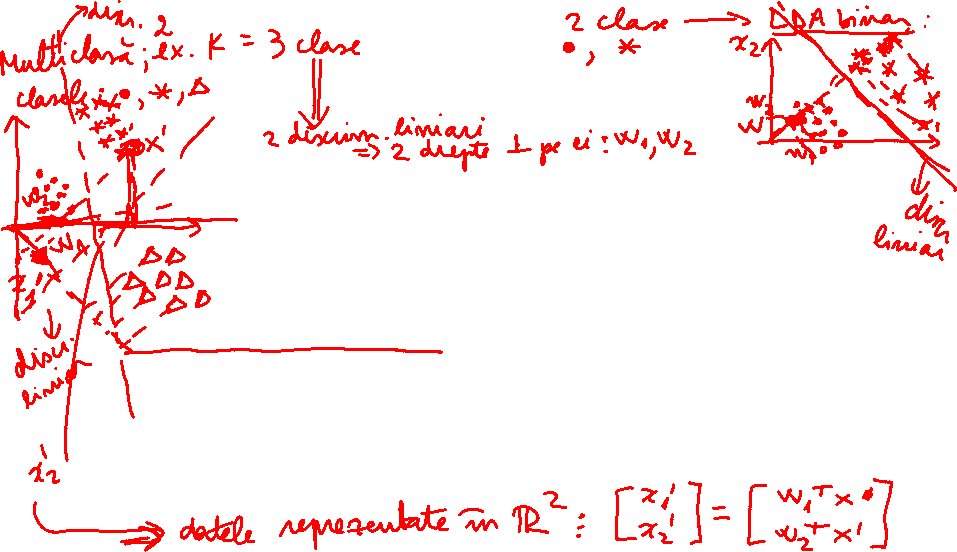 discr. 2
Multiclasă; ex. K = 3 clase
clasele: •, *, Δ
2 discrim. liniari
⇒ 2 drepte ⊥ pe ei: w₁, w₂
2 clase → LDA binar:
•, *
x₂
w
w₁
discr
liniar
x'
w₂
w₁
x'₁
discr.
liniar
x'₂
→ datele reprezentate în ℝ²: [x₁' x₂'] = [w₁ᵀx w₂ᵀx']